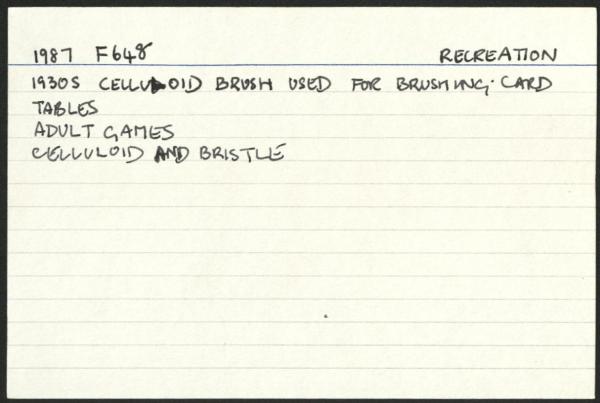 1987 F648 RECREATION
1930S CELLULOID BRUSH USED FOR BRUSHING CARD
TABLES
ADULT GAMES
CELLULOID AND BRISTLE